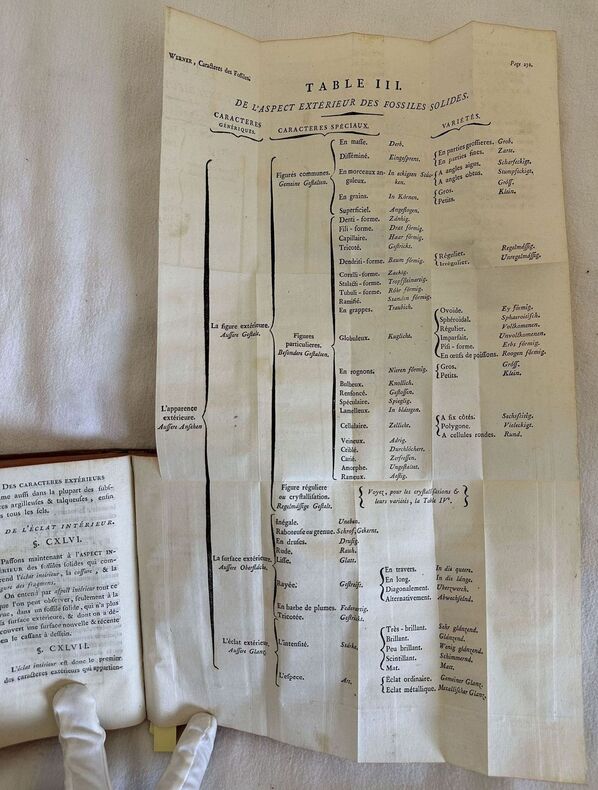 WERNER, Caracteres des Fossiles.
Page 256.
TABLE III.
DE L'ASPECT EXTÉRIEUR DES FOSSILES SOLIDES.
CARACTERES
GÉNÉRIQUES.
CARACTERES SPÉCIAUX.
VARIÉTÉS.
L'apparence
extérieure.
Aussere Ansehen
La figure extérieure.
Aussere Gestalt.
Figures communes.
Gemeine Gestalten.
En masse. Derb.
Disséminé. Eingesprent.
En parties grossieres. Grob.
En parties fines. Zarte.
En morceaux an-
guleux.
In eckigen Stüc-
ken.
A angles aigus. Scharfeckigt.
A angles obtus. Stumpfeckigt.
En grains. In Körnen.
Gros. Gröss.
Petits. Klein.
Superficiel. Angeflogen.
Figures
particulieres.
Besondere Gestalten.
Denti-forme. Zänhig.
Fili-forme. Drat förmig.
Capillaire. Haar förmig.
Tricoté. Gestrickt.
Dendriti-forme. Baum förmig.
Régulier. Regelmässig.
Irrégulier. Unregelmässig.
Coralli-forme. Zackig.
Stalacti-forme. Tropfsteinartig.
Tubuli-forme. Röhr förmig.
Ramifié. Stauden förmig.
En grappes. Traubich.
Globuleux. Kuglicht.
Ovoide. Ey förmig.
Sphéroïdal. Sphäroidisch.
Régulier. Vollkomenen.
Imparfait. Unvollkomenen.
Pisi-forme. Erbs förmig.
En œufs de poissons. Roogen förmig.
En rognons. Nieren förmig.
Gros. Gröss.
Petits. Klein.
Bulbeux. Knollich.
Renfoncé. Gestossen.
Spéculaire. Spieglig.
Lamelleux. In blätgen.
Cellulaire. Zellicht.
A six côtés. Sechsstielg.
Polygone. Vieleckigt.
A cellules rondes. Rund.
Veineux. Adrig.
Criblé. Durchlöchert.
Carié. Zerfressen.
Amorphe. Ungestaltet.
Rameux. Aestig.
Figure réguliere
ou crystallisation.
Regelmässige Gestalt.
Voyez, pour les crystallisations &
leurs variétés, la Table IVe.
La surface extérieure.
Aussere Oberfläche.
Inégale. Uneben.
Raboteuse ou grenue. Schrof, Gekernt.
En druses. Drusig.
Rude. Rauh.
Lisse. Glatt.
Rayée. Gestreift.
En travers. In die queere.
En long. In die länge.
Diagonalement. Uberzwerch.
Alternativement. Abwechselnd.
En barbe de plumes. Federartig.
Tricotée. Gestrickt.
L'éclat extérieur.
Aussere Glanz.
L'intensité. Stärke.
Très-brillant. Sehr glänzend.
Brillant. Glänzend.
Peu brillant. Wenig glänzend.
Scintillant. Schimmernd.
Mat. Matt.
L'espece. Art.
Eclat ordinaire. Gemeiner Glanz.
Eclat métallique. Metallischer Glanz.
DES CARACTERES EXTÉRIEURS
me aussi dans la plupart des subs-
ces argilleuses & talqueuses, enfin
s tous les sels.
DE L'ÉCLAT INTÉRIEUR.
§. CXLVI.
Passons maintenant à l'ASPECT IN-
ÉRIEUR des fossiles solides qui com-
rend l'éclat intérieur, la cassure, & la
gure des fragmens.
On entend par aspect intérieur tout ce
que l'on peut observer, seulement à la
vue, dans un fossile solide, qui n'a plus
sa surface extérieure, & dont on a dé-
couvert une surface nouvelle & récente
en le cassant à dessein.
§. CXLVII.
L'éclat intérieur est donc le premier
des caracteres extérieurs qui appartien-